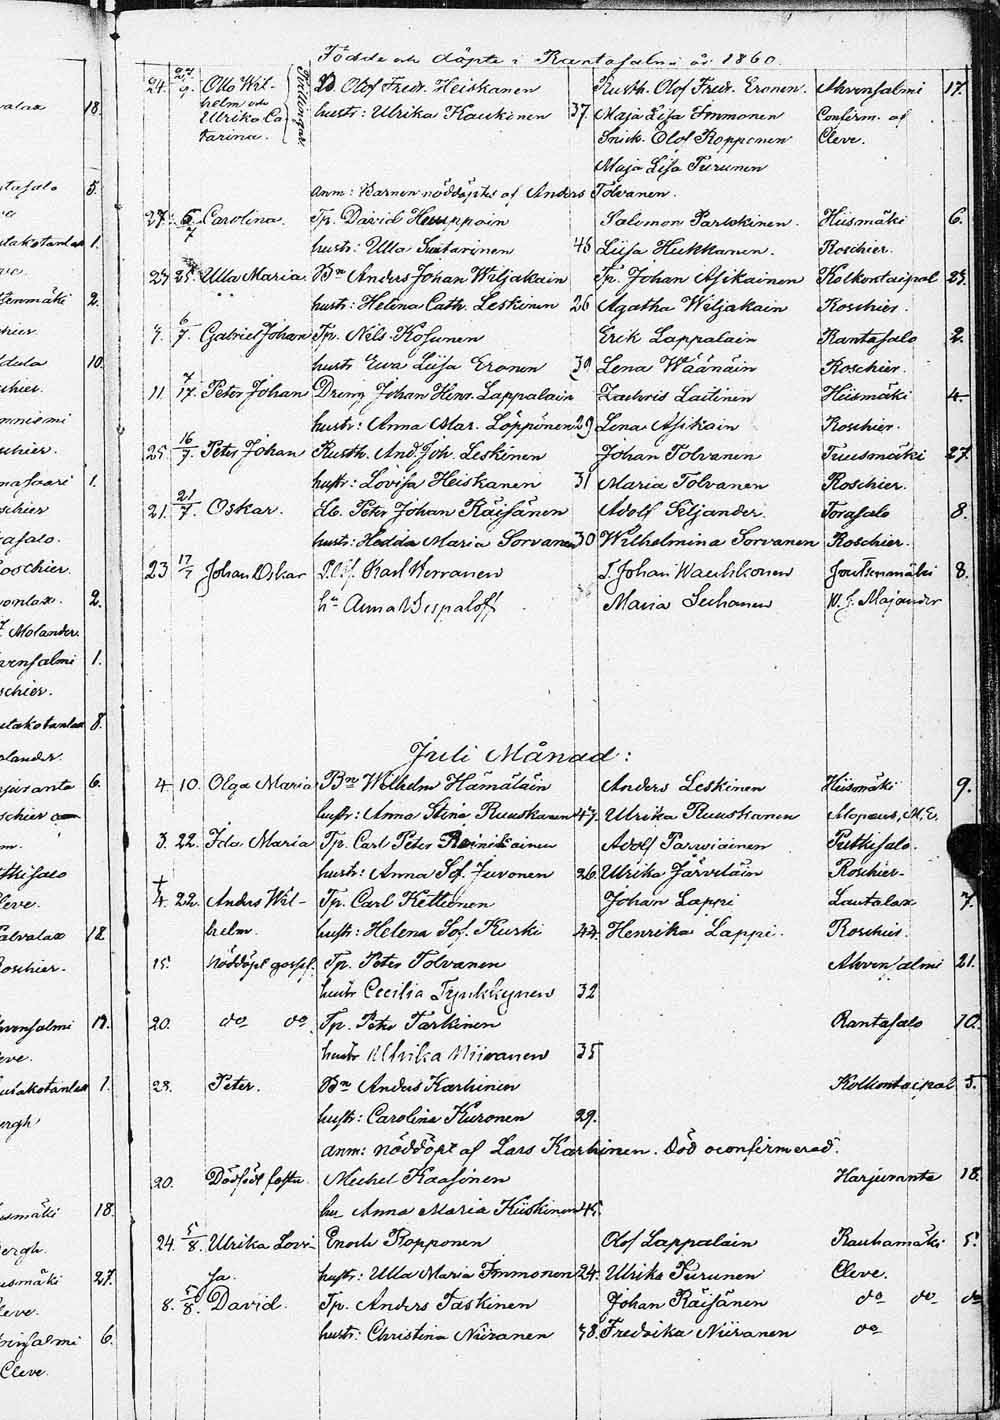 Födde och döpte i Rantasalmi år 1860.
24. 27/7 Otto Wil- Tvillingar B. Olof Fredr. Heiskanen Rusth. Olof Fredr. Eronen. Ahvensalmi 17.
helm och hustr: Ulrika Kaukinen 37. Maja Lisa Immonen Confirm. af
Ulrika Ca Snick. Olof Ropponen Cleve.
tarina. Maja Lisa Turunen
anm: Barnen nöddöpte af Anders Tolvanen.
27. 5/7 Carolina. Tp. David Huuppoin Salomon Parwkinen. Hiismäki 6.
hustr: Ulla Suutarinen 46 Liisa Hukkanen. Roschier.
27 25. Ulla Maria. Bn Anders Johan Wiljakain Tp. Johan Asikainen Kolkontaipal 23.
hustr: Helena Cath. Leskinen 26 Agatha Wiljakain Roschier.
7. 6/7. Gabriel Johan Tp. Nils Kosunen Erik Lappalain Rantasalo 2.
hustr Ewa Liisa Eronen 39 Lena Wäänäin Roschier.
11 7/17. Peter Johan Dreng Johan Henr. Lappalain Zachris Laitinen Hiismäki 4.
hustr: Anna Mar. Löppönen 29 Lena Asikain Roschier.
25. 16/7. Peter Johan Rusth. And. Joh. Leskinen Johan Tolvanen Tuusmäki 27.
hustr: Lovisa Heiskanen 31 Maria Tolvanen Roschier.
21. 21/7. Oskar. Peter Johan Räisänen Adolf Siljander. Torasalo 8.
hustr: Hedda Maria Sorvanen 30 Wilhelmina Sorvanen Roschier.
23 17/7 Johan Oskar Karl Kervanen T. Johan Wauhkonen Joutsenmäki 8.
hu Anna Bespaloff Maria Suhonen W. J. Majander
Juli Månad:
4. 10. Olga Maria Bn Wilhelm Hämäläin Anders Leskinen Hiismäki 9.
hustr: Anna Stina Ruuskanen 47. Ulrika Ruuskanen Alopaeus, M. E.
3. 22. Ida Maria Tp. Carl Peter Reinikainen Adolf Parwiainen Putkisalo.
hustr: Anna Sof. Juvonen 26. Ulrika Järveläin Roschier.
† 4. 22. Anders Wil- Tp. Carl Kettunen Johan Lappi Lautalax 7.
helm. hustr: Helena Sof. Kurki 44. Henrika Lappi. Roschier.
15. Nöddöpt gosse. Tp. Peter Tolvanen Ahvensalmi 21.
hustr Cecilia Tynkkynen 32
20. do do Tp. Peter Tarkinen Rantasalo 10.
hustr Ulrika Niiranen 35
23. Peter. Bn Anders Karhinen Kolkontaipal 5.
hustr: Carolina Kuronen 29.
anm: nöddöpt af Lars Karhinen. Död oconfirmerad.
20. Dödfödt foster. Michel Kaasinen Harjuranta 18.
hu Anna Maria Kiiskinen 45.
24. 5/8. Ulrika Lovi- Enoch Ropponen Olof Lappalain Rauhamäki 5.
sa. hustr: Ulla Maria Immonen 24. Ulrika Turunen Cleve.
8. 5/8. David. Tp. Anders Taskinen Johan Räisänen do do do
hustr: Christina Niiranen 38. Fredrika Niiranen do